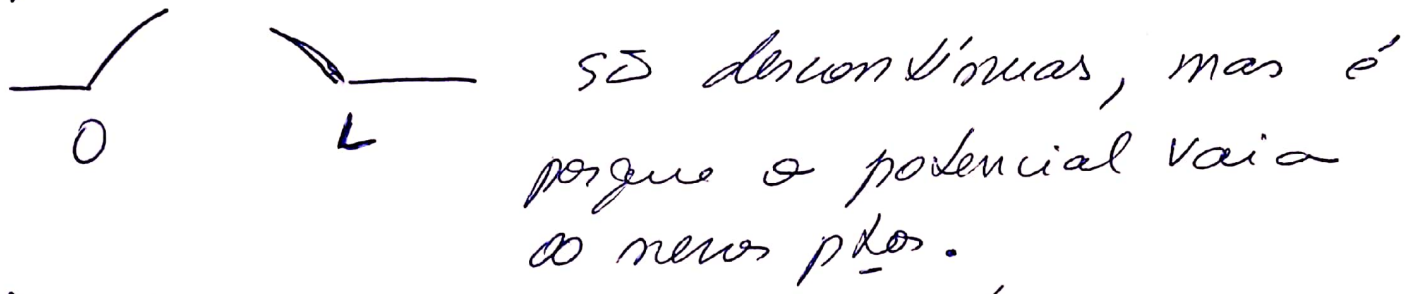 só descontínuas, mas é
O L
porque o potencial vai a
∞ nesses ptos.